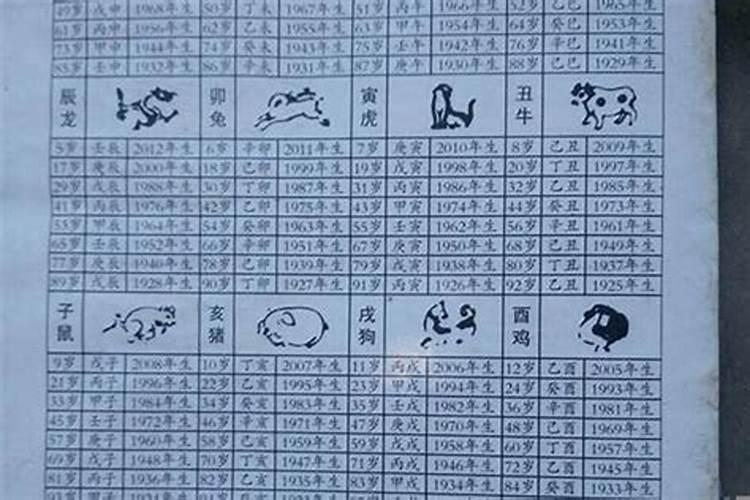 49岁 戊申 1968年生 50岁 丁未 1967年生 51岁 丙午 1966年生 52岁 乙巳 1965年生
61岁 丙申 1956年生 62岁 乙未 1955年生 63岁 甲午 1954年生 64岁 癸巳 1953年生
73岁 甲申 1944年生 74岁 癸未 1943年生 75岁 壬午 1942年生 76岁 辛巳 1941年生
85岁 壬申 1932年生 86岁 辛未 1931年生 87岁 庚午 1930年生 88岁 己巳 1929年生
辰龙 卯兔 寅虎 丑牛
5岁 壬辰 2012年生 6岁 辛卯 2011年生 7岁 庚寅 2010年生 8岁 己丑 2009年生
17岁 庚辰 2000年生 18岁 己卯 1999年生 19岁 戊寅 1998年生 20岁 丁丑 1997年生
29岁 戊辰 1988年生 30岁 丁卯 1987年生 31岁 丙寅 1986年生 32岁 乙丑 1985年生
41岁 丙辰 1976年生 42岁 乙卯 1975年生 43岁 甲寅 1974年生 44岁 癸丑 1973年生
53岁 甲辰 1964年生 54岁 癸卯 1963年生 55岁 壬寅 1962年生 56岁 辛丑 1961年生
65岁 壬辰 1952年生 66岁 辛卯 1951年生 67岁 庚寅 1950年生 68岁 己丑 1949年生
77岁 庚辰 1940年生 78岁 己卯 1939年生 79岁 戊寅 1938年生 80岁 丁丑 1937年生
89岁 戊辰 1928年生 90岁 丁卯 1927年生 91岁 丙寅 1926年生 92岁 乙丑 1925年生
子鼠 亥猪 戌狗 酉鸡
9岁 戊子 2008年生 10岁 丁亥 2007年生 11岁 丙戌 2006年生 12岁 乙酉 2005年生
21岁 丙子 1996年生 22岁 乙亥 1995年生 23岁 甲戌 1994年生 24岁 癸酉 1993年生
33岁 甲子 1984年生 34岁 癸亥 1983年生 35岁 壬戌 1982年生 36岁 辛酉 1981年生
45岁 壬子 1972年生 46岁 辛亥 1971年生 47岁 庚戌 1970年生 48岁 己酉 1969年生
57岁 庚子 1960年生 58岁 己亥 1959年生 59岁 戊戌 1958年生 60岁 丁酉 1957年生
69岁 戊子 1948年生 70岁 丁亥 1947年生 71岁 丙戌 1946年生 72岁 乙酉 1945年生
81岁 丙子 1936年生 82岁 乙亥 1935年生 83岁 甲戌 1934年生 84岁 癸酉 1933年生